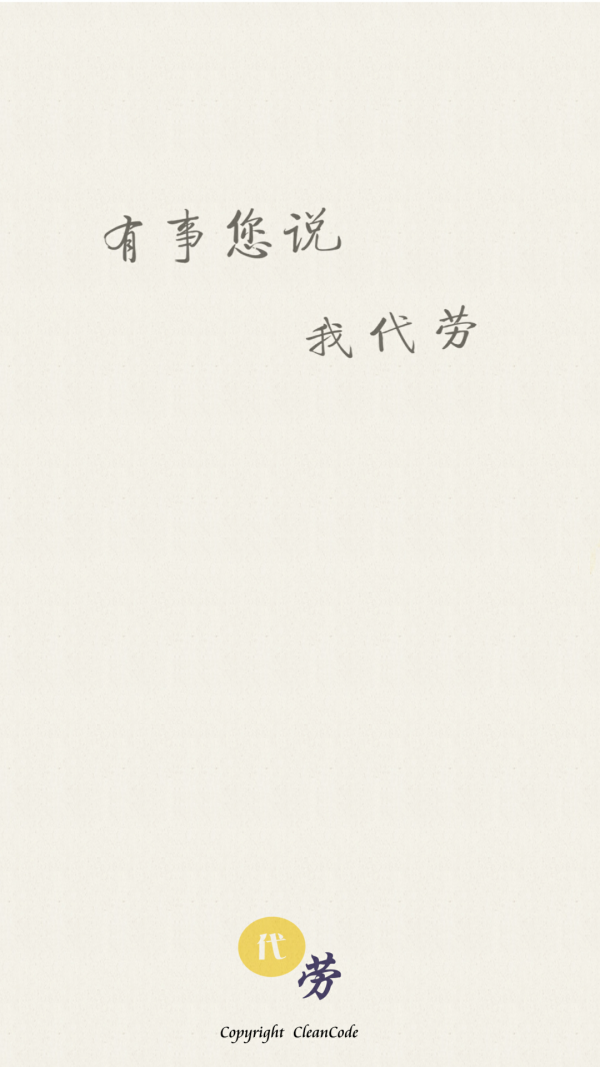 有事您说
我代劳
代
劳
Copyright CleanCode